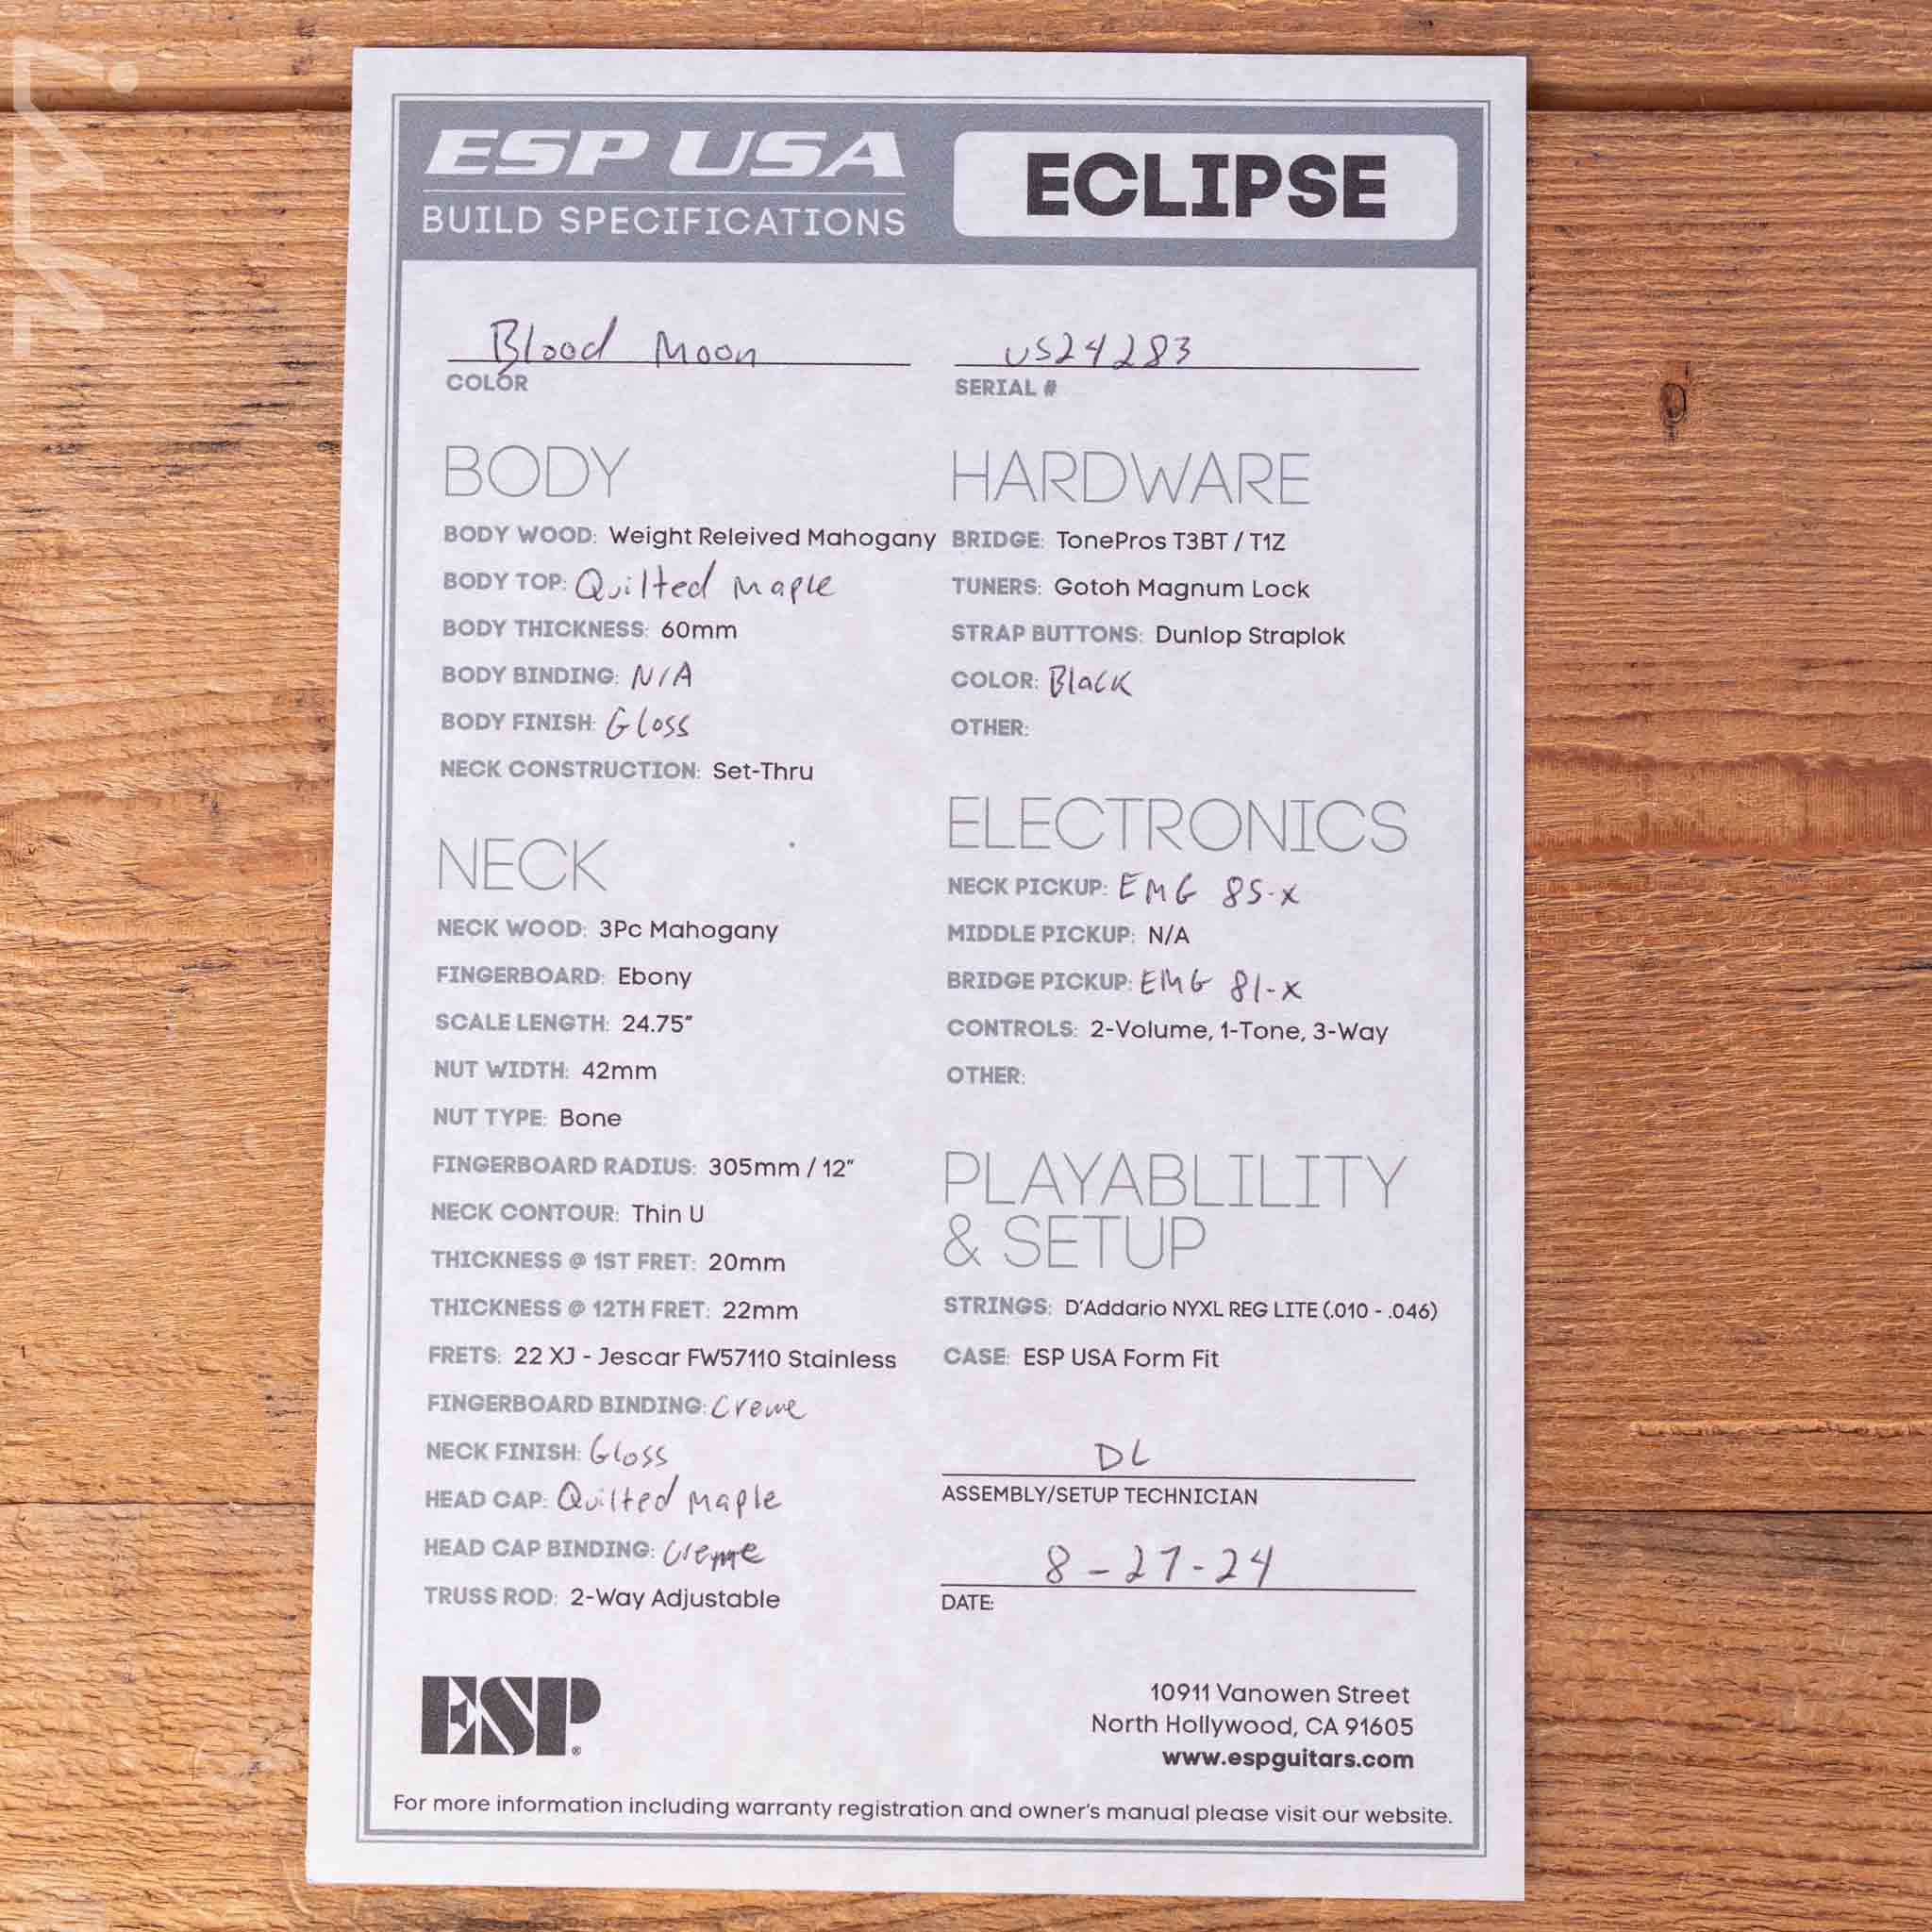 ESP USA
BUILD SPECIFICATIONS
ECLIPSE
Blood Moon
COLOR
US24283
SERIAL #
BODY
BODY WOOD: Weight Releived Mahogany
BODY TOP: Quilted Maple
BODY THICKNESS: 60mm
BODY BINDING: N/A
BODY FINISH: Gloss
NECK CONSTRUCTION: Set-Thru
NECK
NECK WOOD: 3Pc Mahogany
FINGERBOARD: Ebony
SCALE LENGTH: 24.75"
NUT WIDTH: 42mm
NUT TYPE: Bone
FINGERBOARD RADIUS: 305mm / 12"
NECK CONTOUR: Thin U
THICKNESS @ 1ST FRET: 20mm
THICKNESS @ 12TH FRET: 22mm
FRETS: 22 XJ - Jescar FW57110 Stainless
FINGERBOARD BINDING: Creme
NECK FINISH: Gloss
HEAD CAP: Quilted Maple
HEAD CAP BINDING: Creme
TRUSS ROD: 2-Way Adjustable
HARDWARE
BRIDGE: TonePros T3BT / T1Z
TUNERS: Gotoh Magnum Lock
STRAP BUTTONS: Dunlop Straplok
COLOR: Black
OTHER:
ELECTRONICS
NECK PICKUP: EMG 85-X
MIDDLE PICKUP: N/A
BRIDGE PICKUP: EMG 81-X
CONTROLS: 2-Volume, 1-Tone, 3-Way
OTHER:
PLAYABLILITY
& SETUP
STRINGS: D'Addario NYXL REG LITE (.010 - .046)
CASE: ESP USA Form Fit
DL
ASSEMBLY/SETUP TECHNICIAN
8-27-24
DATE:
ESP®
10911 Vanowen Street
North Hollywood, CA 91605
www.espguitars.com
For more information including warranty registration and owner's manual please visit our website.